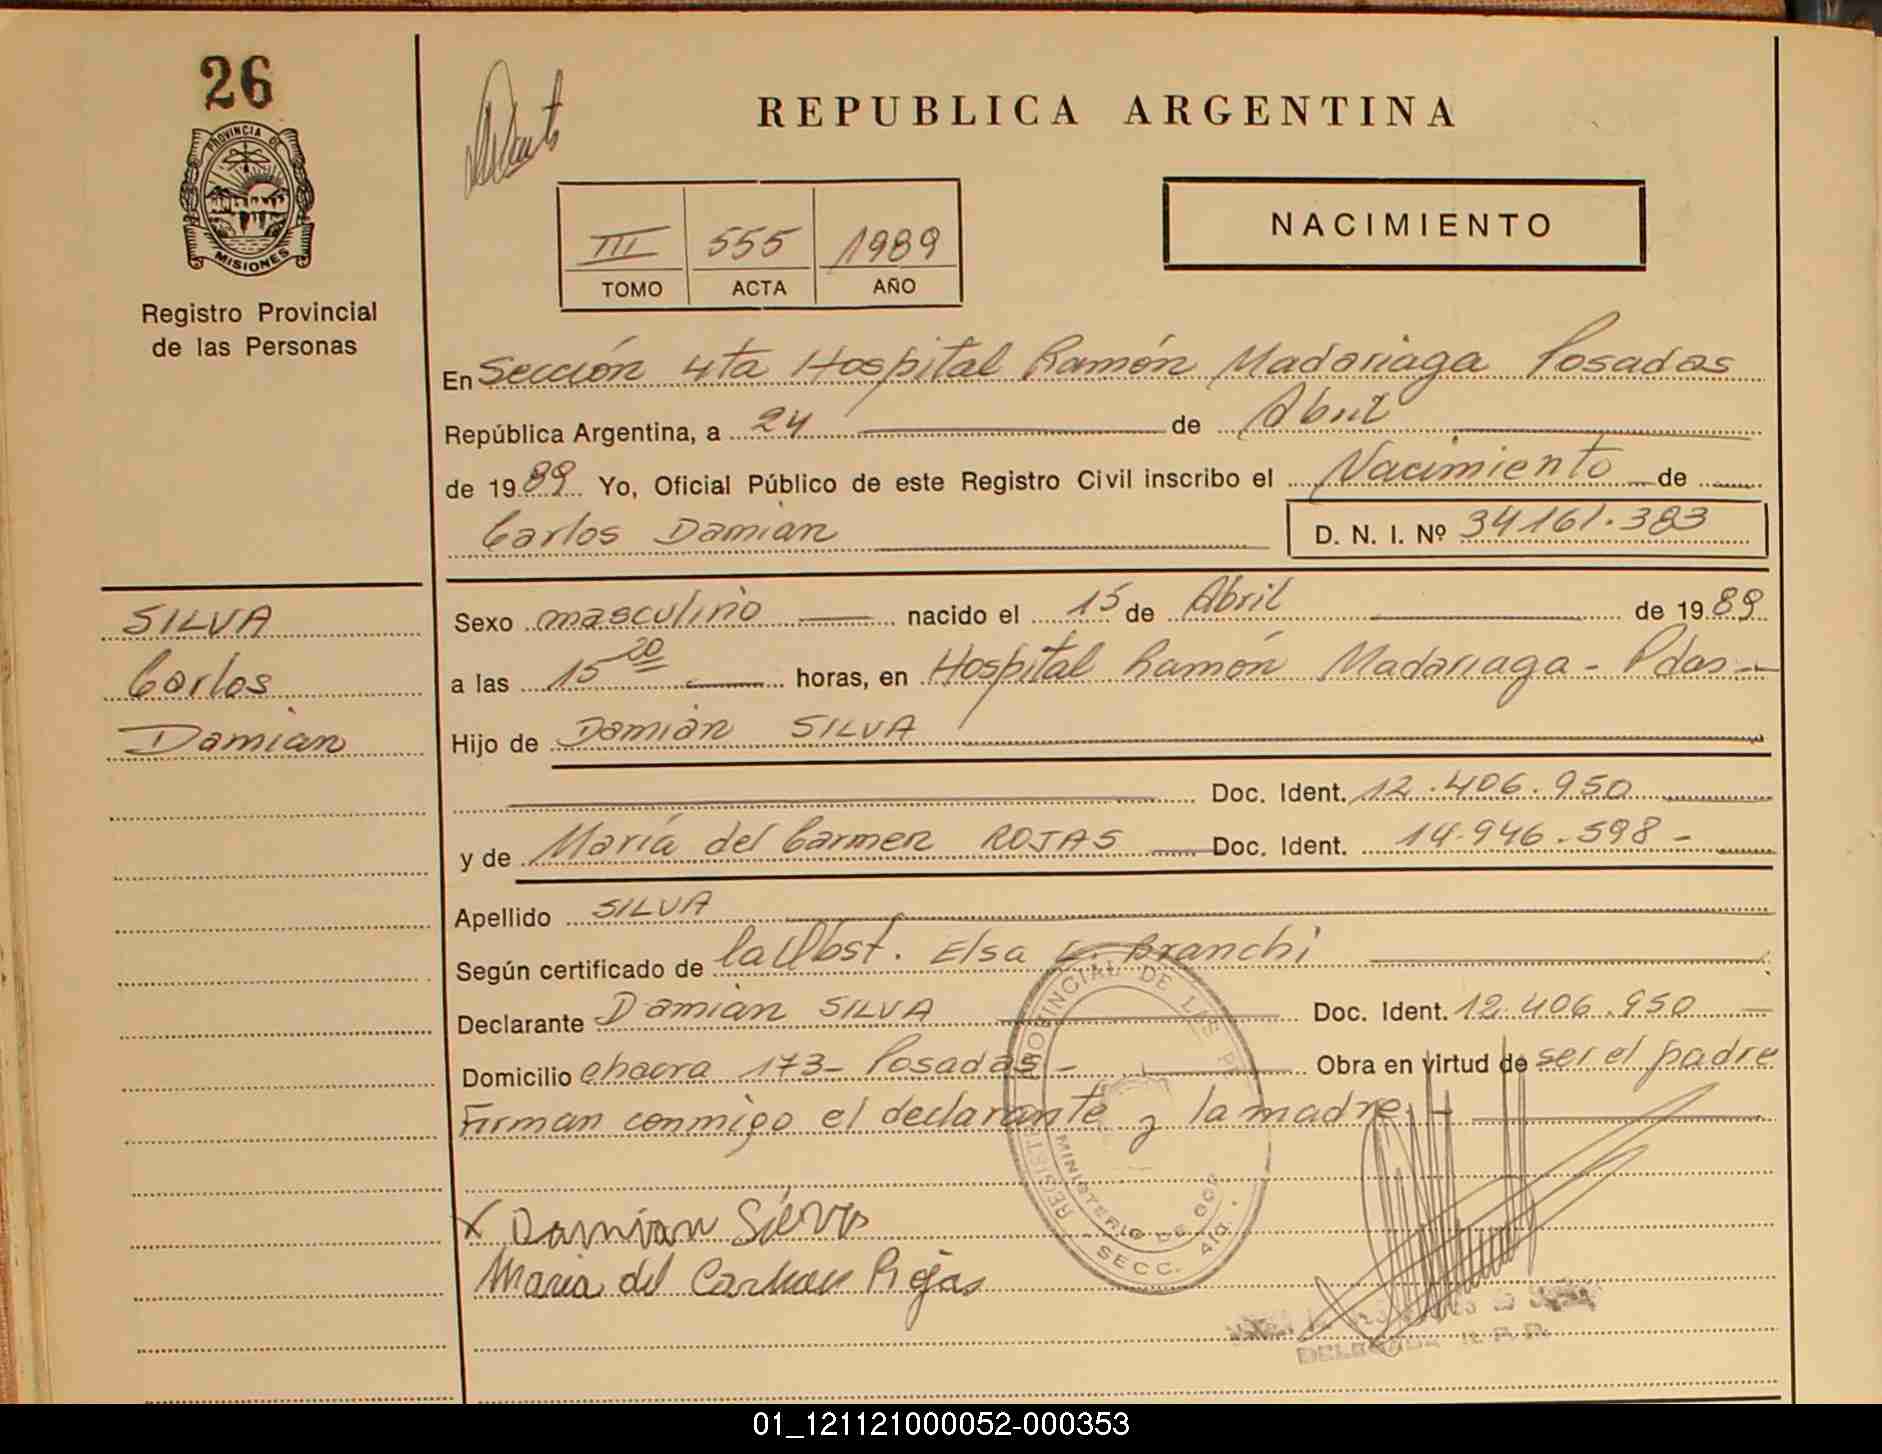 26
PROVINCIA DE
MISIONES
Registro Provincial
de las Personas
SILVA
Carlos
Damián
REPUBLICA ARGENTINA
NACIMIENTO
III 555 1989
TOMO ACTA AÑO
En Sección 4ta Hospital Ramón Madariaga Posadas
República Argentina, a 24 de Abril
de 1989 Yo, Oficial Público de este Registro Civil inscribo el Nacimiento de
Carlos Damián D. N. I. Nº 34161.383
Sexo masculino nacido el 15 de Abril de 1989
a las 15 20 horas, en Hospital Ramón Madariaga - Pdas -
Hijo de Damián SILVA
Doc. Ident. 12.406.950
y de María del Carmen ROJAS Doc. Ident. 14.946.598 -
Apellido SILVA
Según certificado de la Obst. Elsa E. Branchi
Declarante Damián SILVA Doc. Ident. 12.406.950
Domicilio chacra 173 - Posadas - Obra en virtud de ser el padre
Firman conmigo el declarante y la madre. -
REGISTRO PROVINCIAL DE LAS
MINISTERIO DE GOB
SECC. 4ta.
x Damian Silva
Maria del Carmen Rojas
DELEGADA R. P. P.
01_121121000052-000353